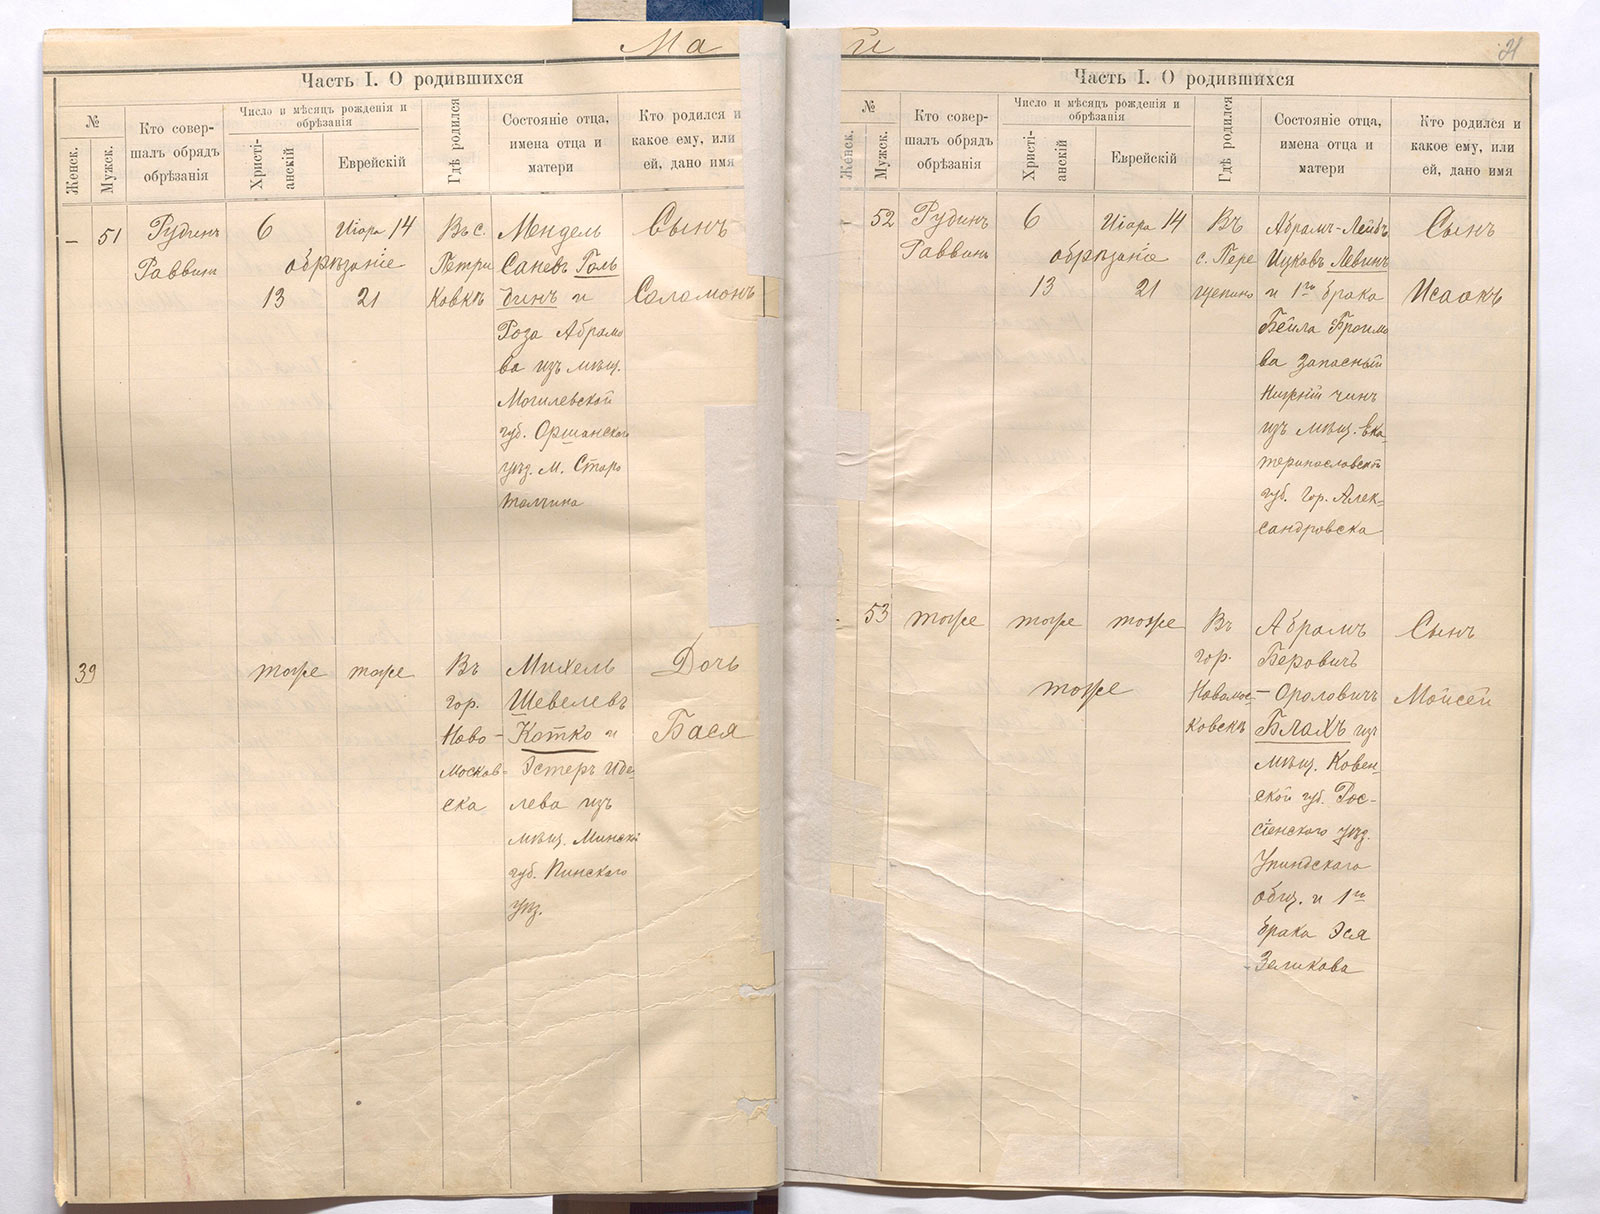 Ма й
21
Часть I. О родившихся
№
Женск.
Мужск.
Кто совер-
шалъ обрядъ
обрѣзанія
Число и мѣсяцъ рожденія и
обрѣзанія
Христі-
анскій
Еврейскій
Гдѣ родился
Состояніе отца,
имена отца и
матери
Кто родился и
какое ему, или
ей, дано имя
—
51
Рудинъ
Раввинъ
6
Иіара 14
обрѣзаніе
13
21
Въ с.
Петри
ковкѣ
Мендель
Саневъ Голь
динъ и
Роза Абрамо
ва изъ мѣщ.
Могилевской
губ. Оршанскаго
уѣзд. м. Старо
толчина
Сынъ
Саламонъ
39
тоже
тоже
Въ
гор.
Ново-
москов-
ска
Михель
Шевелевъ
Котко и
Эстеръ Иде-
лева изъ
мѣщ. Минской
губ. Пинскаго
уѣз.
Дочь
Бася
Часть I. О родившихся
№
Женск.
Мужск.
Кто совер-
шалъ обрядъ
обрѣзанія
Число и мѣсяцъ рожденія и
обрѣзанія
Христі-
анскій
Еврейскій
Гдѣ родился
Состояніе отца,
имена отца и
матери
Кто родился и
какое ему, или
ей, дано имя
—
52
Рудинъ
Раввинъ
6
Иіара 14
обрѣзаніе
13
21
Въ
с. Пере
щепино
Абрамъ-Лейбъ
Ицковъ Левинъ
и 1го брака
Бейла Броимо
ва запасный
нижній чинъ
изъ мѣщ. Ека-
теринославской
губ. гор. Алек-
сандровска
Сынъ
Исаакъ
53
тоже
тоже
тоже
тоже
Въ
гор.
Новомос-
ковскѣ
Абрамъ
Беровичъ
— Ороловичъ
Блахъ изъ
мѣщ. Ковен-
ской губ. Рос-
сіенскаго уѣзд.
общ. и 1го
брака Эся
Зеликова
Сынъ
Мойсей